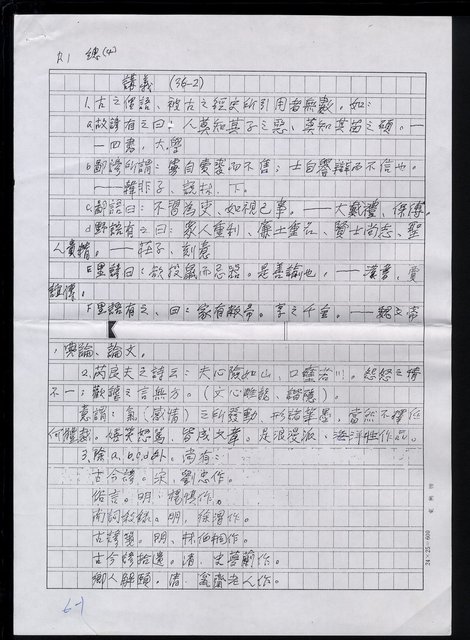 R1 總(4)
講義 (36-2)
1.古之俚語、被古之經史所引用者無數。如:
a.故諺有之曰:人莫知其子之惡、莫知其苗之碩。—
—四書,大學
b.鄙諺所謂:虜自賣裘而不售;士自譽辯而不信也。
——韓非子、說林、下。
c.鄙語曰:不習為吏、如視已事。——大戴禮、保傅。
d.野語有之曰:眾人重利、廉士重名、賢士尚志、聖
人貴精。——莊子、刻意
E里諺曰:欲投鼠而忌器。是善諭也。——漢書,賈
誼傳。
F里語有之、曰:家有敝帚。享之千金。——魏文帝
,典論、論文。
2.芮良夫之詩云:夫心險如山、口壑若川。怨怒之情
不一;歡謔之言無方。(文心雕龍、諧隱)。
意謂:氣(感情)之所發動 形諸筆墨,當然不擇任
何體裁。嬉笑怒罵,皆成文章。是浪漫派、海洋性作品。
3.除a.b.c.d外。尚有:
古今諺。宋,劉忠作。
俗言。明:楊慎作。
南詞敘錄。明,徐渭作。
古諺箋。明、林伯桐作。
古今諺拾遺。清,史夢蘭作。
鄉人解頤。清 甕齋老人作。
24×25=600
6-1